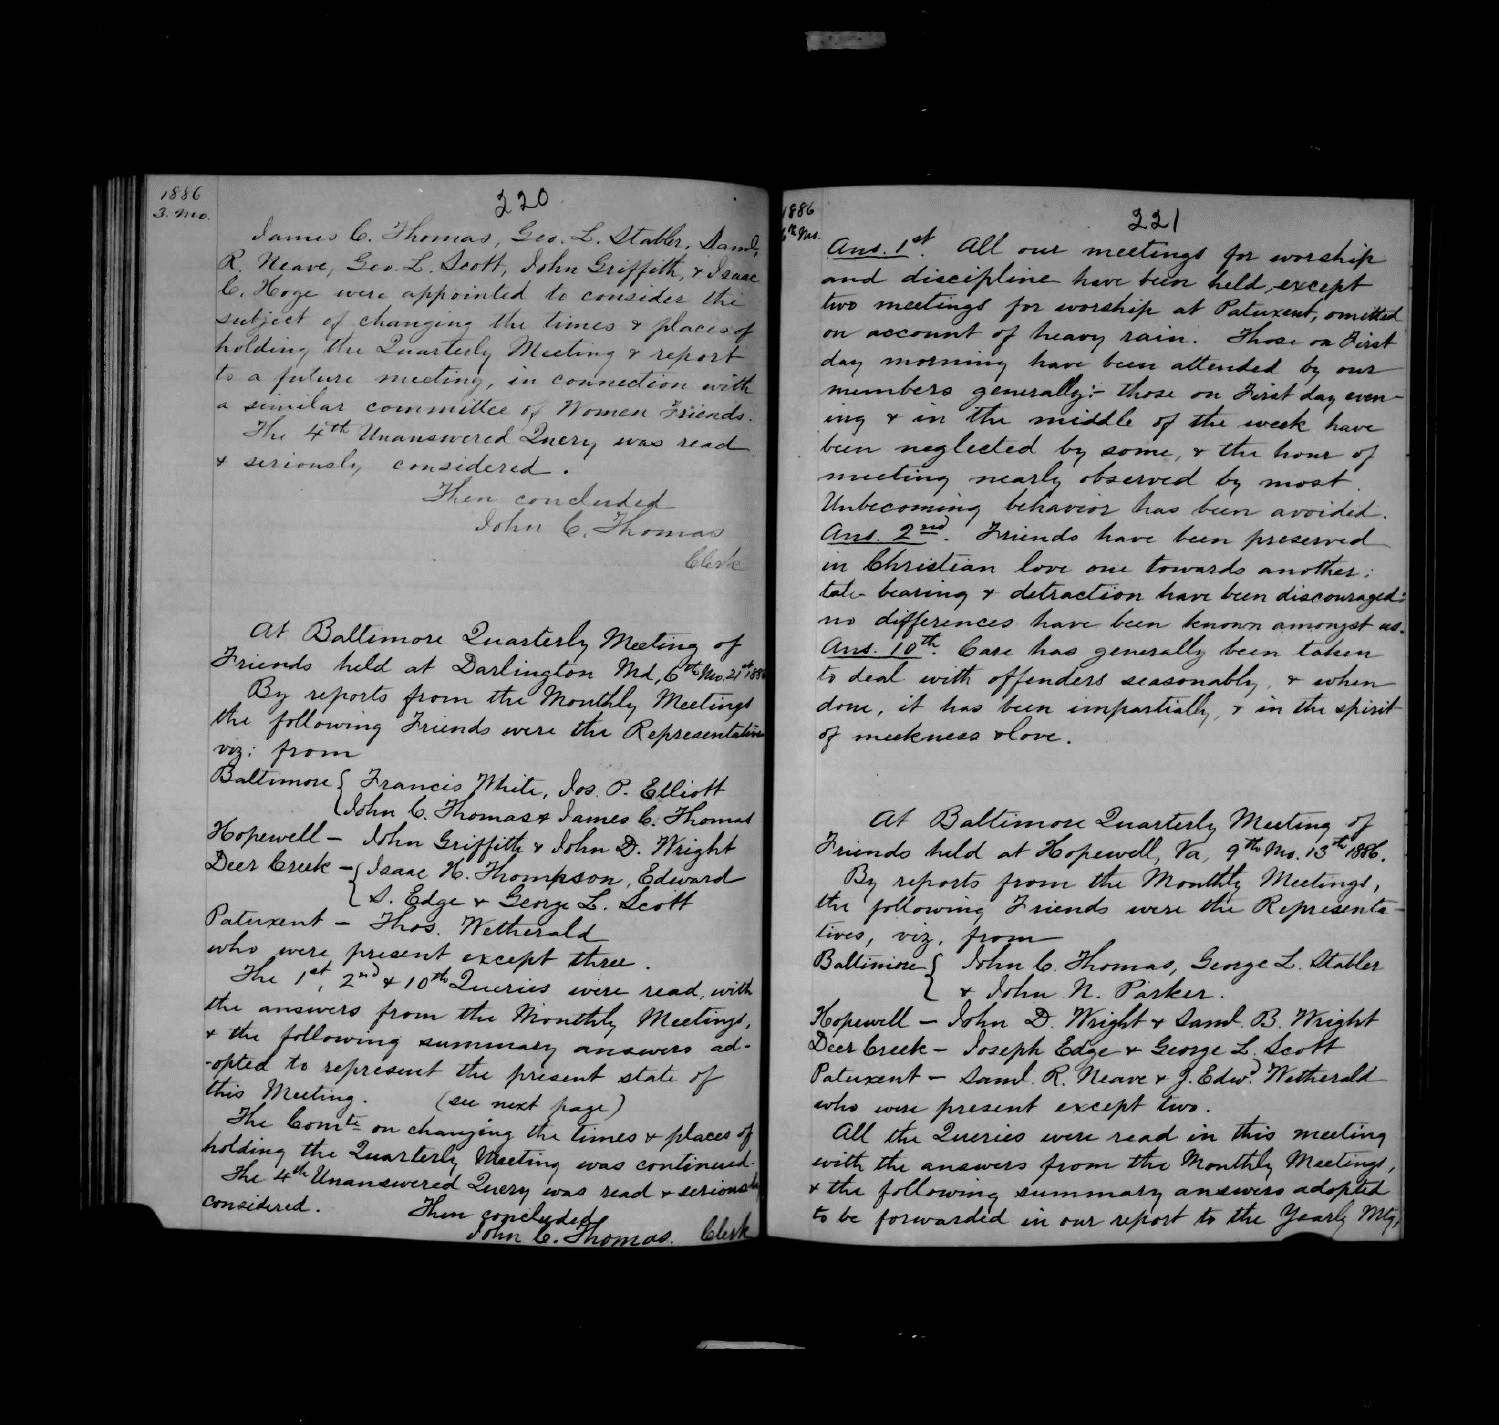 1886
3. Mo.
220
James C. Thomas, Geo. L. Stabler, Saml.
R. Neave, Geo. L. Scott, John Griffith, & Isaac
C. Hoge were appointed to consider the
subject of changing the times & places of
holding the Quarterly Meeting & report
to a future meeting, in connection with
a similar committee of Women Friends.
The 4th Unanswered Query was read
& seriously considered.
Then concluded
John C. Thomas
Clerk
At Baltimore Quarterly Meeting of
Friends held at Darlington Md, 6th Mo. 21st 1886
By reports from the Monthly Meetings
the following Friends were the Representatives
viz: from
Baltimore { Francis White, Jos. P. Elliott
John C. Thomas & James C. Thomas
Hopewell – John Griffith & John D. Wright
Deer Creek – { Isaac H. Thompson, Edward
S. Edge & George L. Scott
Patuxent – Thos. Wetherald
who were present except three.
The 1st, 2nd & 10th Queries were read, with
the answers from the Monthly Meetings,
& the following summary answers ad-
-opted to represent the present state of
this Meeting. (see next page)
The Comte on changing the times & places of
holding the Quarterly Meeting was continued.
The 4th Unanswered Query was read & seriously
considered. Then concluded
John C. Thomas. Clerk
1886
6th Mo.
221
Ans. 1st. All our meetings for worship
and discipline have been held, except
two meetings for worship at Patuxent, omitted
on account of heavy rain. Those on First
day morning have been attended by our
members generally:– those on First day even-
ing & in the middle of the week have
been neglected by some, & the hour of
meeting nearly observed by most.
Unbecoming behavior has been avoided.
Ans. 2nd. Friends have been preserved
in Christian love one towards another;
tale-bearing & detraction have been discouraged:
no differences have been known amongst us.
Ans. 10th. Care has generally been taken
to deal with offenders seasonably, & when
done, it has been impartially, & in the spirit
of meekness & love.
At Baltimore Quarterly Meeting of
Friends held at Hopewell, Va, 9th Mo. 13th 1886.
By reports from the Monthly Meetings,
the following Friends were the Representa-
tives, viz. from
Baltimore { John C. Thomas, George L. Stabler
& John N. Parker.
Hopewell – John D. Wright & Saml. B. Wright
Deer Creek – Joseph Edge & George L. Scott
Patuxent – Saml. R. Neave & J. Edwd. Wetherald
who were present except two.
All the Queries were read in this meeting
with the answers from the Monthly Meetings,
& the following summary answers adopted
to be forwarded in our report to the Yearly Mtg,